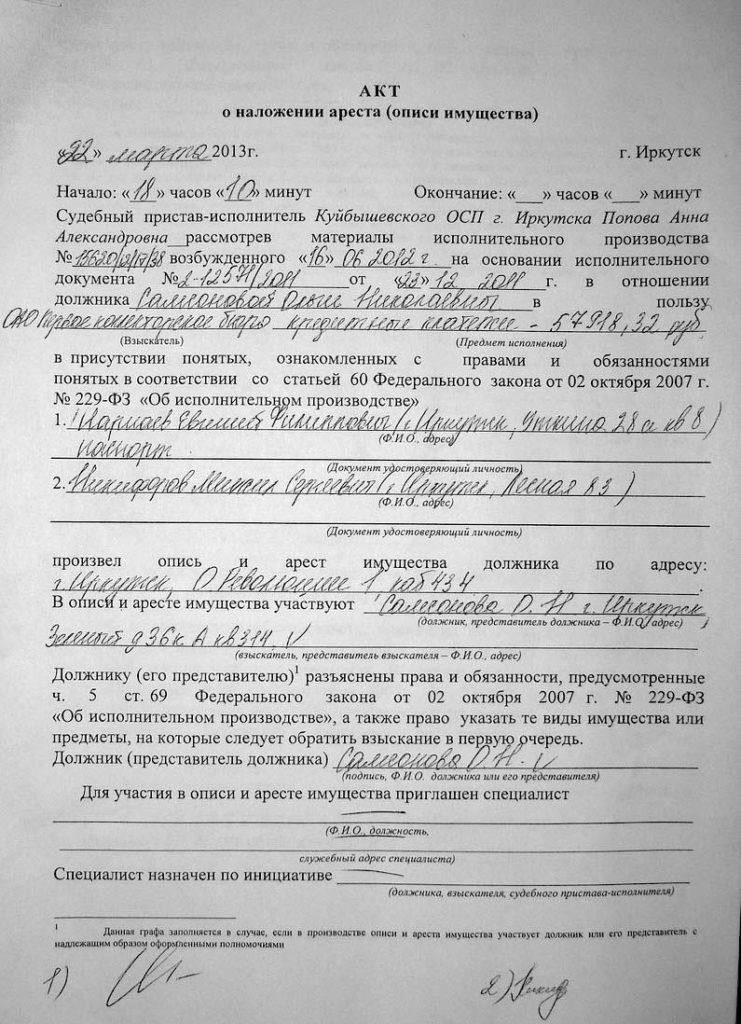 АКТ
о наложении ареста (описи имущества)
«22» марта 2013г. г. Иркутск
Начало: «18» часов «10» минут Окончание: «___» часов «___» минут
Судебный пристав-исполнитель Куйбышевского ОСП г. Иркутска Попова Анна
Александровна рассмотрев материалы исполнительного производства
№15620/12/17/38 возбужденного «16» 06 2012 г. на основании исполнительного
документа №2-12571/2011 от «23» 12 2011 г. в отношении
должника Самсоновой Ольги Николаевны в пользу
ОАО Первое коллекторское бюро кредитные платежи - 57918,32 руб.
(Взыскатель) (Предмет исполнения)
в присутствии понятых, ознакомленных с правами и обязанностями
понятых в соответствии со статьей 60 Федерального закона от 02 октября 2007 г.
№ 229-ФЗ «Об исполнительном производстве»
1. Евгений Филиппович (г. Иркутск, Уткина 28 а кв 8)
(Ф.И.О., адрес)
паспорт
(Документ удостоверяющий личность)
2. Никифоров Михаил Сергеевич (г. Иркутск, Лесная 83)
(Ф.И.О., адрес)
(Документ удостоверяющий личность)
произвел опись и арест имущества должника по адресу:
г. Иркутск, О.Революции 1 каб 434
В описи и аресте имущества участвуют Самсонова О. Н г. Иркутск,
(должник, представитель должника – Ф.И.О, адрес)
Зеленый д 36 к. А кв 314. V
(взыскатель, представитель взыскателя – Ф.И.О., адрес)
Должнику (его представителю)1 разъяснены права и обязанности, предусмотренные
ч. 5 ст. 69 Федерального закона от 02 октября 2007 г. № 229-ФЗ
«Об исполнительном производстве», а также право указать те виды имущества или
предметы, на которые следует обратить взыскание в первую очередь.
Должник (представитель должника) Самсонова О. Н. V
(подпись, Ф.И.О. должника или его представителя)
Для участия в описи и аресте имущества приглашен специалист
(Ф.И.О., должность,
служебный адрес специалиста)
Специалист назначен по инициативе
(должника, взыскателя, судебного пристава-исполнителя)
1 Данная графа заполняется в случае, если в производстве описи и ареста имущества участвует должник или его представитель с
надлежащим образом оформленными полномочиями
1) 2)